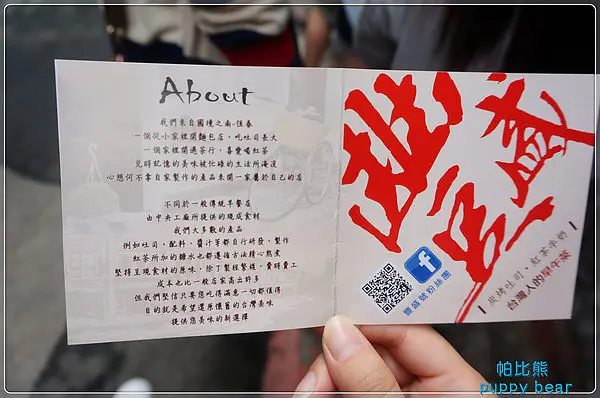 About
我們來自國境之南-恆春
一個從小家裡開麵包店，吃吐司長大
一個家裡開過茶行，喜愛喝紅茶
兒時記憶的美味被忙碌的生活所淹沒
心想何不拿自家製作的產品來開一家屬於自己的店
不同於一般傳統早餐店
由中央工廠所提供的現成食材
我們大多數的產品
例如吐司、配料、醬汁等都自行研發、製作
紅茶所加的糖水也都遵循古法精心熬煮
堅持呈現食材的原味，除了製程繁複，費時費工
成本也比一般店家高出許多
但我們堅信只要您吃得滿意一切都值得
目的就是希望還原懷舊的台灣美味
提供您美味的新選擇
豐盛號
f
豐盛號粉絲團
炭烤吐司．紅茶牛奶
台灣人的早午茶
帕比熊
puppy bear